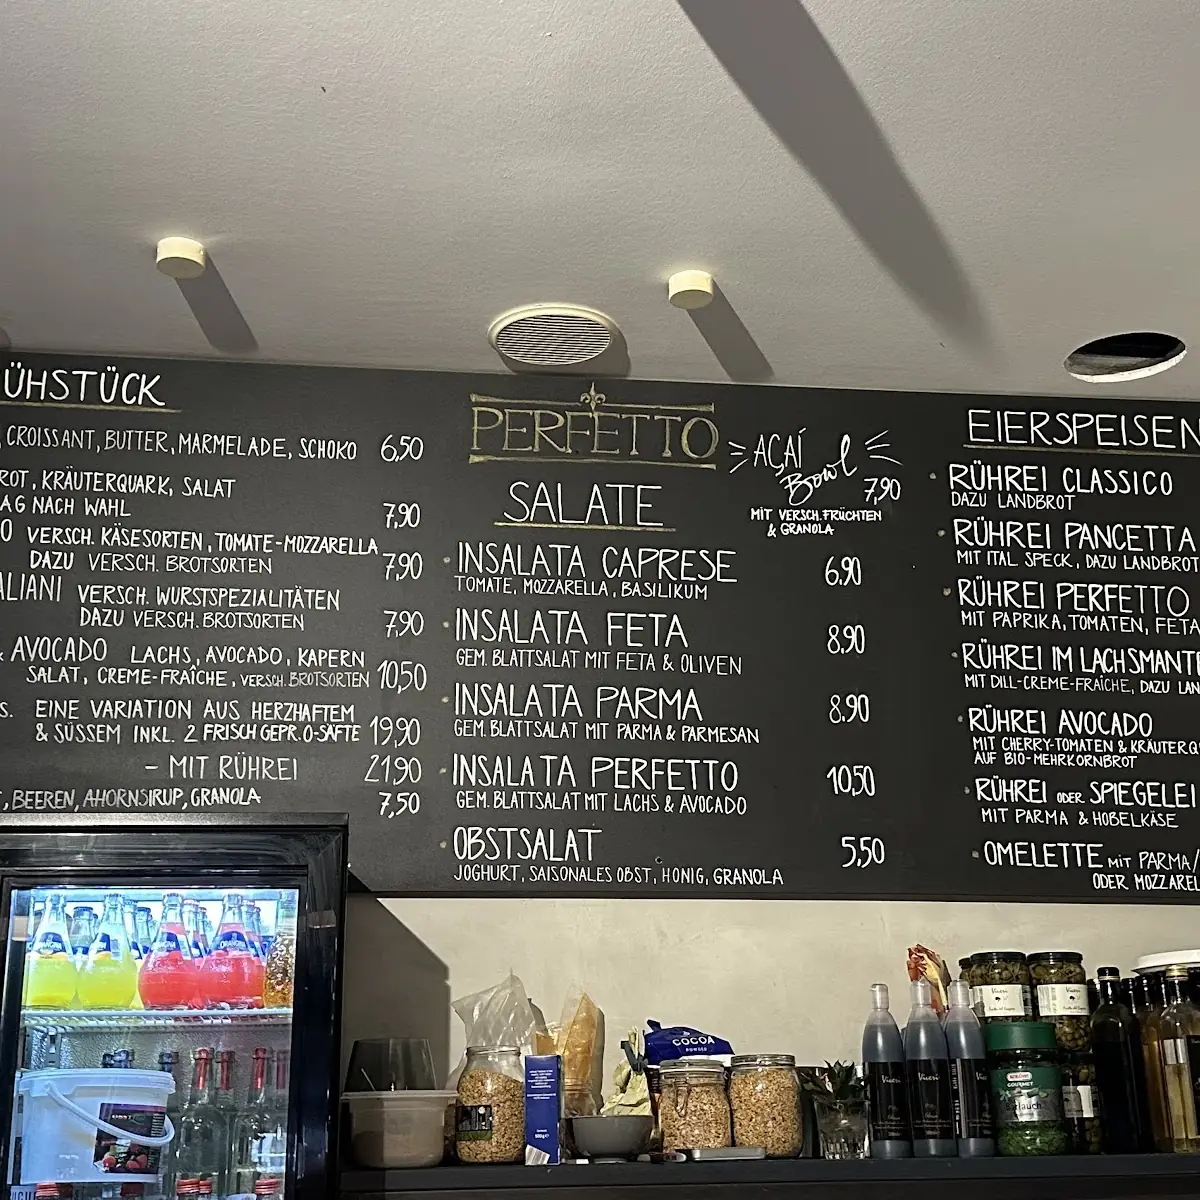 ÜHSTÜCK
, CROISSANT, BUTTER, MARMELADE, SCHOKO 6,50
ROT, KRÄUTERQUARK, SALAT
AG NACH WAHL 7,90
O VERSCH. KÄSESORTEN, TOMATE-MOZZARELLA
DAZU VERSCH. BROTSORTEN 7,90
ALIANI VERSCH. WURSTSPEZIALITÄTEN
DAZU VERSCH. BROTSORTEN 7,90
& AVOCADO LACHS, AVOCADO, KAPERN
SALAT, CREME-FRAÎCHE, VERSCH. BROTSORTEN 10,50
S. EINE VARIATION AUS HERZHAFTEM
& SÜSSEM INKL. 2 FRISCH GEPR. O-SÄFTE 19,90
- MIT RÜHREI 21,90
, BEEREN, AHORNSIRUP, GRANOLA 7,50
PERFETTO
AÇAÍ
Bowl
7,90
MIT VERSCH. FRÜCHTEN
& GRANOLA
SALATE
INSALATA CAPRESE 6.90
TOMATE, MOZZARELLA, BASILIKUM
INSALATA FETA 8,90
GEM. BLATTSALAT MIT FETA & OLIVEN
INSALATA PARMA 8.90
GEM. BLATTSALAT MIT PARMA & PARMESAN
INSALATA PERFETTO 10,50
GEM. BLATTSALAT MIT LACHS & AVOCADO
OBSTSALAT 5,50
JOGHURT, SAISONALES OBST, HONIG, GRANOLA
EIERSPEISEN
RÜHREI CLASSICO
DAZU LANDBROT
RÜHREI PANCETTA
MIT ITAL SPECK, DAZU LANDBROT
RÜHREI PERFETTO
MIT PAPRIKA, TOMATEN, FETA
RÜHREI IM LACHSMANT
MIT DILL-CREME-FRAÎCHE, DAZU LAN
RÜHREI AVOCADO
MIT CHERRY-TOMATEN & KRÄUTERQ
AUF BIO-MEHRKORNBROT
RÜHREI ODER SPIEGELEI
MIT PARMA & HOBELKÄSE
OMELETTE MIT PARMA/
ODER MOZZAREL
ORANGINA
COCOA
POWDER
Viveri
GOURMET